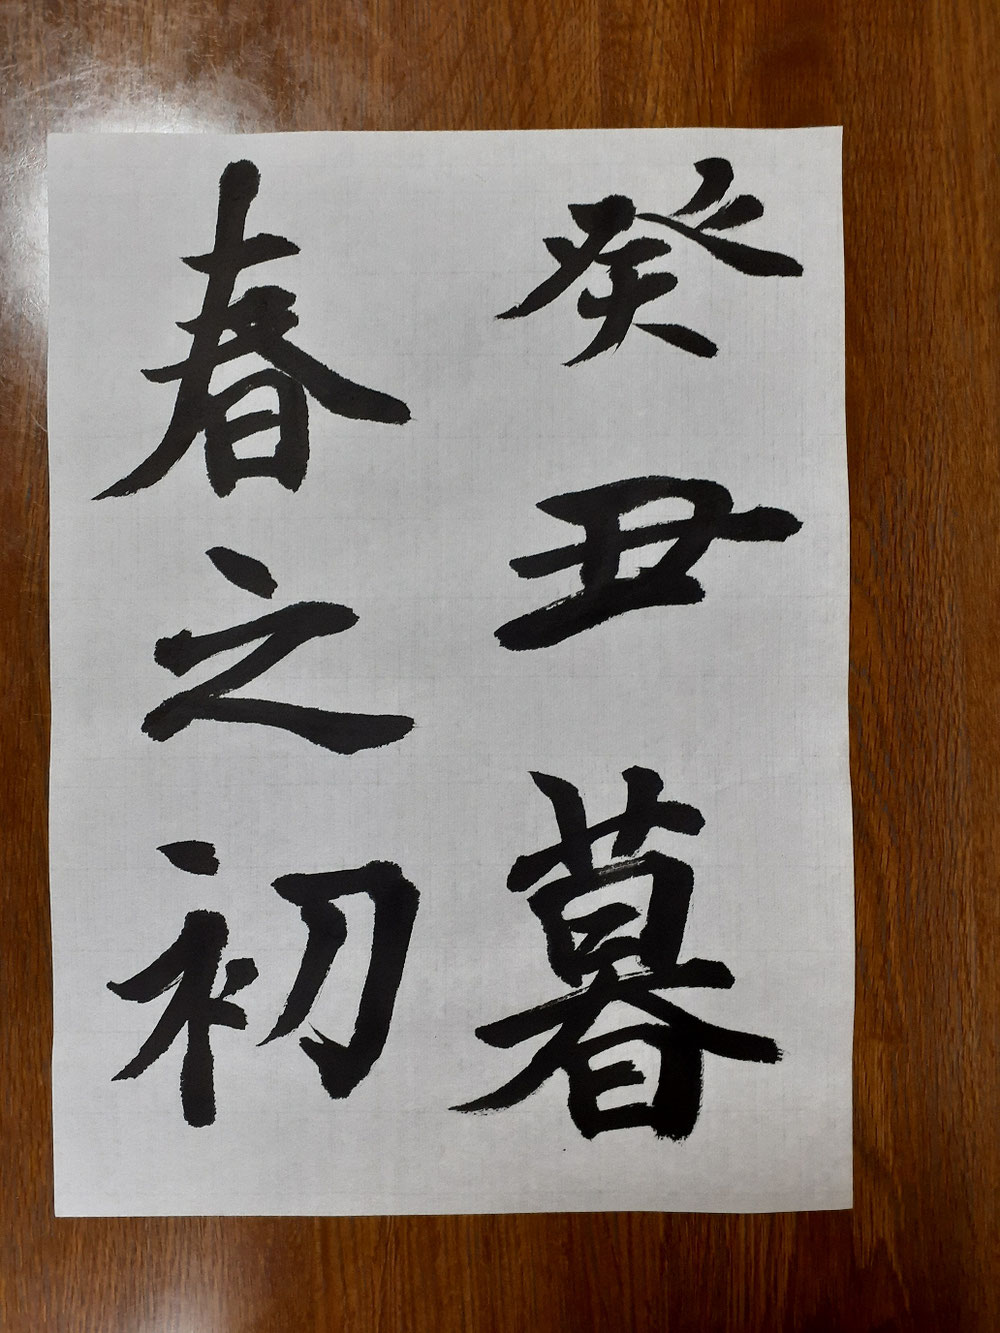 癸丑暮
春之初